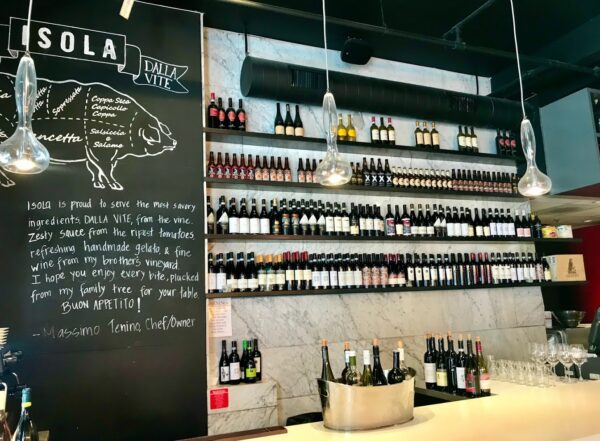 ISOLA
DALLA
VITE
Soppressata
Coppa Seca
Capicollo
Coppa
Salsiccia
o
Salamo
ISOLA is proud to serve the most savory
ingredients, DALLA VITE, from the vine.
Zesty sauce from the ripest tomatoes
refreshing handmade gelato & fine
wine from my brother's vineyard.
I hope you enjoy every bite, plucked
from my family tree for your table.
BUON APPETITO!
- Massimo Tenino, Chef/Owner
XXX